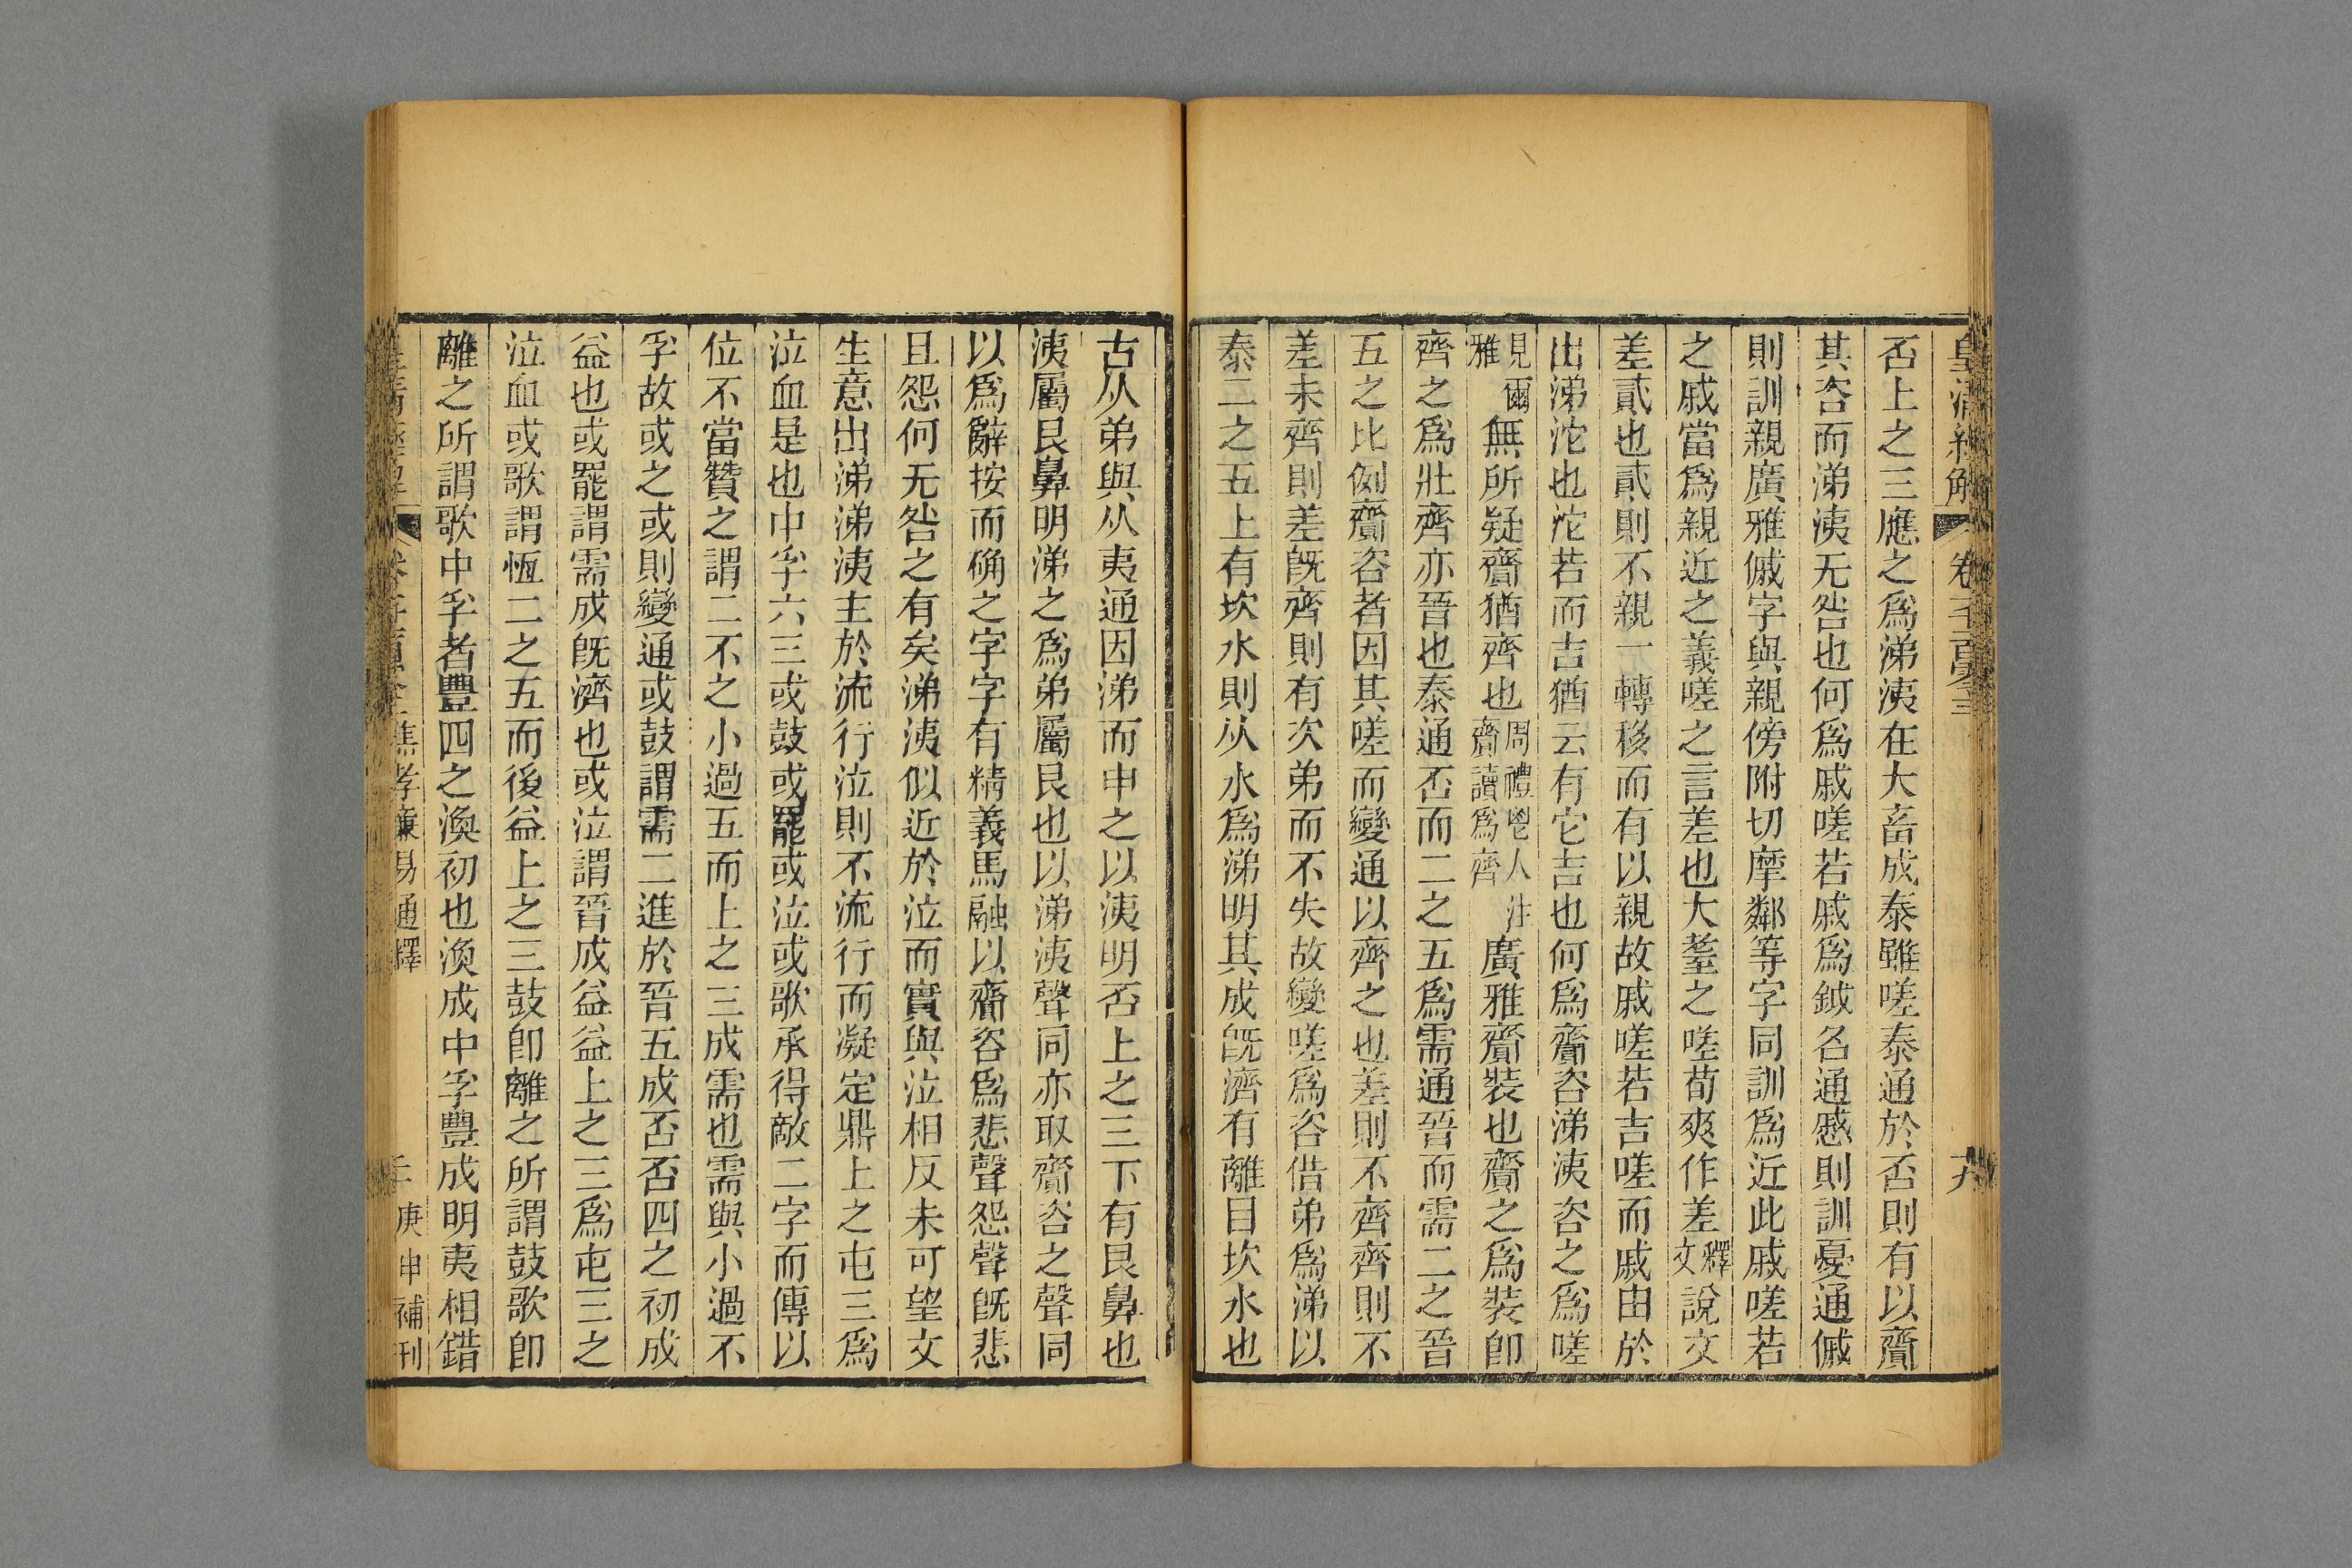 皇清經解 卷千百
否上之三應之爲涕洟在大畜成泰雖嗟泰通於否則有以齎
其咨而涕洟无咎也何爲戚嗟若戚爲鏚名通慼則訓憂通傶
則訓親廣雅傶字與親傍附切摩鄰等字同訓爲近此戚嗟若
之戚當爲親近之義嗟之言差也大耋之嗟荀爽作差釋文說文
差貳也貳則不親一轉移而有以親故戚嗟若吉嗟而戚由於
出涕沱也沱若而吉猶云有它吉也何爲齎咨涕洟咨之爲嗟
見爾雅無所疑齎猶齊也周禮鬯人注齎讀爲齊廣雅齎裝也齎之爲裝卽
齊之爲壯齊亦晉也泰通否而二之五爲需通晉而需二之晉
五之比例齎咨者因其嗟而變通以齊之也差則不齊齊則不
差未齊則差旣齊則有次弟而不失故變嗟爲咨借弟爲涕以
泰二之五上有坎水則从水爲涕明其成旣濟有離目坎水也
古从弟與从夷通因涕而申之以洟明否上之三下有艮鼻也
洟屬艮鼻明涕之爲弟屬艮也以涕洟聲同亦取齎咨之聲同
以爲辭按而确之字字有精義馬融以齎咨爲悲聲怨聲旣悲
且怨何无咎之有矣涕洟似近於泣而實與泣相反未可望文
生意出涕涕洟主於流行泣則不流行而凝定鼎上之屯三爲
泣血是也中孚六三或鼓或罷或泣或歌承得敵二字而傳以
位不當贊之謂二不之小過五而上之三成需也需與小過不
孚故或之或則變通或鼓謂需二進於晉五成否否四之初成
益也或罷謂需成旣濟也或泣謂晉成益益上之三爲屯三之
泣血或歌謂恆二之五而後益上之三鼓卽離之所謂鼓歌卽
離之所謂歌中孚者豐四之渙初也渙成中孚豐成明夷相錯
皇清經解 焦孝廉易通釋 庚申補刊